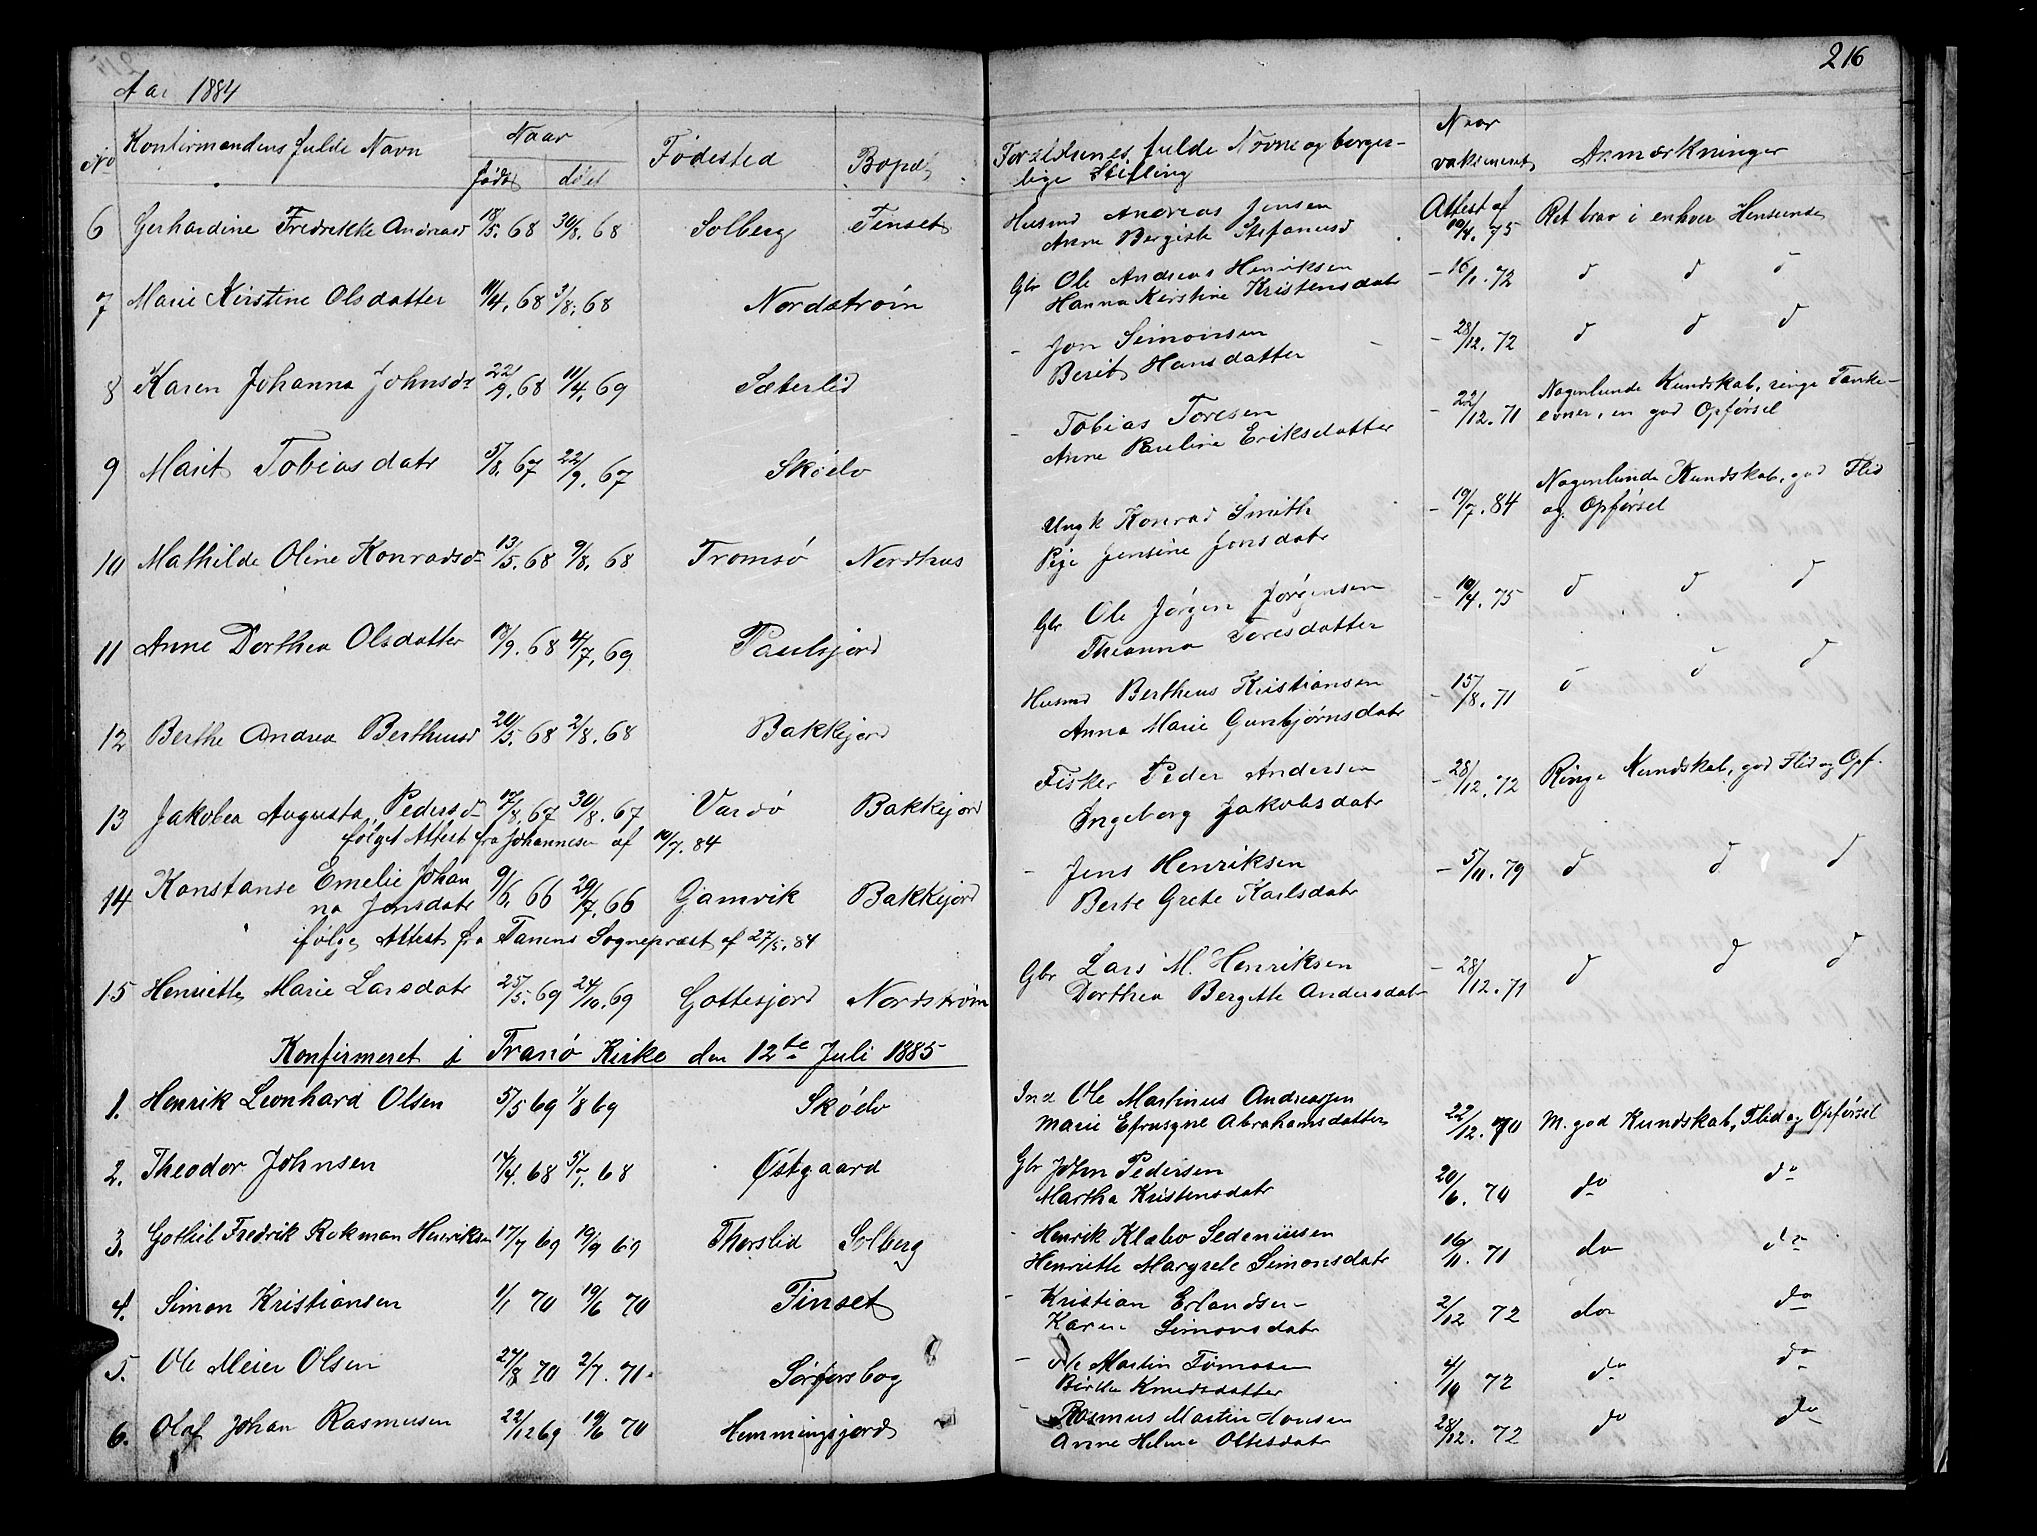 216
Aar 1884
No Konfirmandens fulde Navn Naar Fødested Bopæl Forældrenes fulde Navne og borger- Naar Anmærkninger
født døbt lige Stilling vaksineret
6 Gerhardine Fredrikke Andreasd 18/5. 68 30/8. 68 Solberg Finset Husmd Andreas Jensen Attest af Ret brav i enhver Henseende
Anne Bergiste Stefanusd 10/4. 75
7 Marie Kirstine Olsdatter 11/4. 68 3/8. 68 Nordstrøm Gbr Ole Andreas Henriksen - 16/1. 72 d d d
Hanna Kirstine Kristensdatr
8 Karen Johanna Johnsdr 22/9. 68 11/4. 69 Sæterlid - Jon Simonsen - 28/12. 72 d d d
Berit Hansdatter
9 Marit Tobiasdatr 5/8. 67 22/9. 67 Skóelv - Tobias Toresen - 22/12. 71 Nogenlunde Kundskab, ringe Tanke-
Anne Pauline Eriksdatter evner, en god Opførsel
10 Mathilde Oline Konradsd- 13/5. 68 9/8. 68 Tromsø Nordhus Ungk Konrad Smith - 19/7. 84 Nogenlunde Kundskab, god Flid
Pige Jensine Jonsdatr og Opførsel
11 Anne Dorthea Olsdatter 18/9. 68 4/7. 69 Paulsjord Gbr Ole Jørgen Jørgensen - 10/4. 75 d d d
Theanna Toresdatter
12 Berthe Andrea Bertheusd 20/5. 68 2/8. 68 Bakkejord Husmd Bertheus Kristiansen - 15/8. 71 d d d
Anna Marie Gunbjørnsdatr
13 Jakobea Augusta Pedersd- 17/8. 67 30/8. 67 Vardø Bakkejord Fisker Peder Andersen - 28/12. 72 Ringe Kundskab, god Flid og Opf.
ifølge Attest fra Johannesen af 10/7. 84 Ingeborg Jakobsdatr
14 Konstanse Emelie Johan 9/6. 66 29/7. 66 Gamvik Bakkejord - Jens Henriksen - 5/11. 79 d d d
na Jensdatr Berte Grete Karlsdatr
ifølge Attest fra Tanens Sognepræst af 27/5. 84
15 Henriette Marie Larsdatr 25/5. 69 24/10. 69 Gottesjord Nordstrøm Gbr Lars M. Henriksen - 28/12. 71 d d d
Dorthea Bergitte Andersdatr
Konfirmeret i Tranø Kirke den 12te Juli 1885
1. Henrik Leonhard Olsen 5/5 69 1/8 69 Skóelv Ind Ole Martinus Andreassen 22/12. 70 M. god Kundskab, Flid og Opførsel
Marie Efrusyne Abrahamsdatter
2. Theodor Johnsen 14/4. 68 5/7. 68 Østgaard Gbr John Pedersen 20/6. 70 do do
Martha Kristensdatr
3. Gotlieb Fredrik Rokman Henriksen 17/7 69 19/9 69 Thorslid Solberg - Henrik Klæbo Sedeniusen 16/11. 71 do do
Henriette Margrete Simonsdatr
4. Simon Kristiansen 1/1 70 19/6 70 Finset - Kristian Erlandsen 2/12 72 do do
Karen Simonsdatr
5. Ole Meier Olsen 27/8 70 2/7. 71. Sørforsbog - Ole Martin Tomasen 4/10 72 do do
Birthe Knudsdatter
6. Olaf Johan Rasmusen 22/12 69 19/6 70 Hemmingsjord Rasmus Martin Hansen 28/12. 72 do do
Anne Helene Ottesdatr